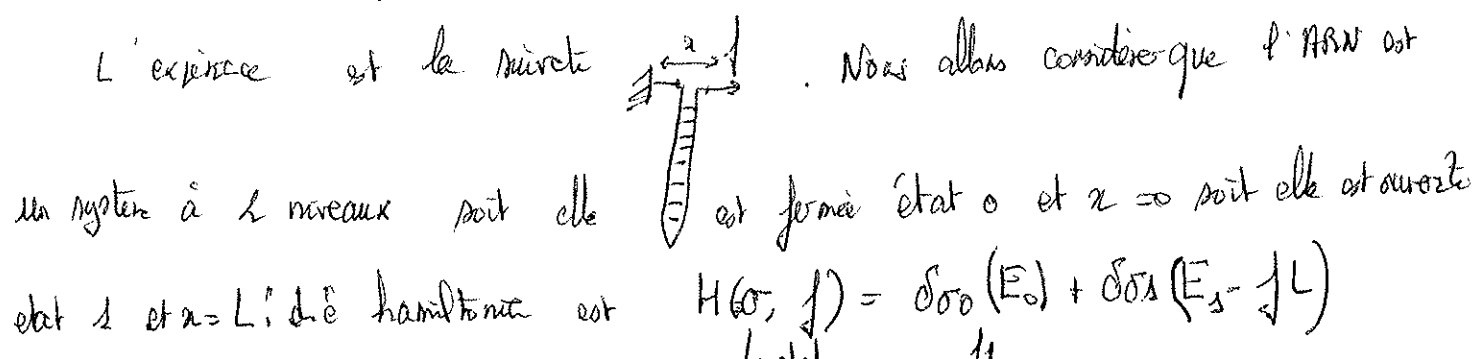 L'expérience est la suivante x f . Nous allons considérer que l'ARN est
un système à 2 niveaux soit elle est fermée état 0 et x = 0 soit elle est ouverte
etat 1 et x = L : hamiltonien est H(σ, f) = δσ0 (E₀) + δσ1 (E₁ - fL)